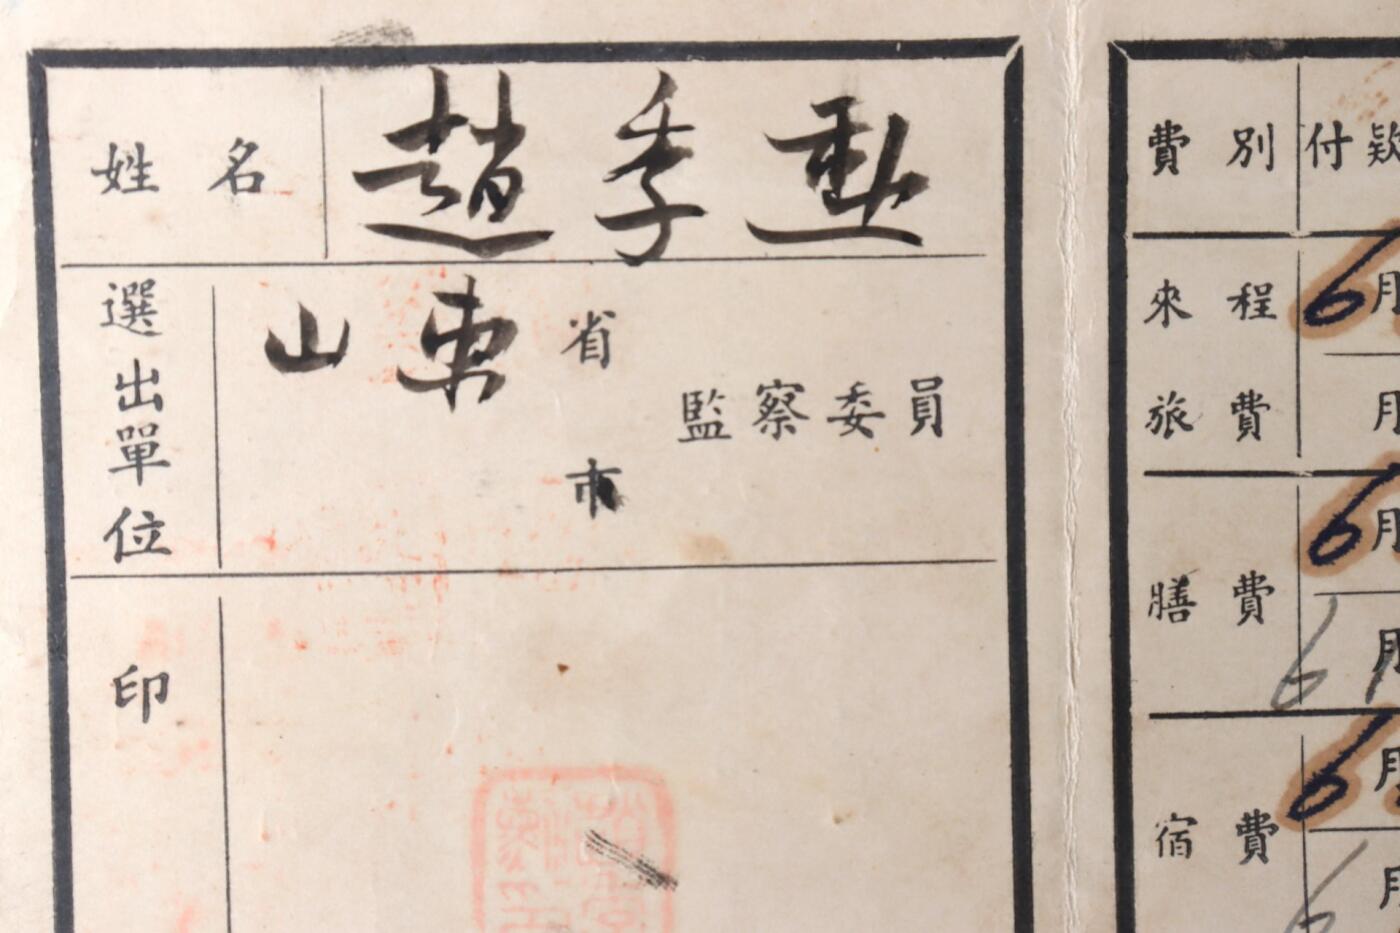 姓名 趙季勳
選出單位 山東省市 監察委員
印
費別 付款
來程旅費 6月
月
膳費 6月
6月
宿費 6月
6月